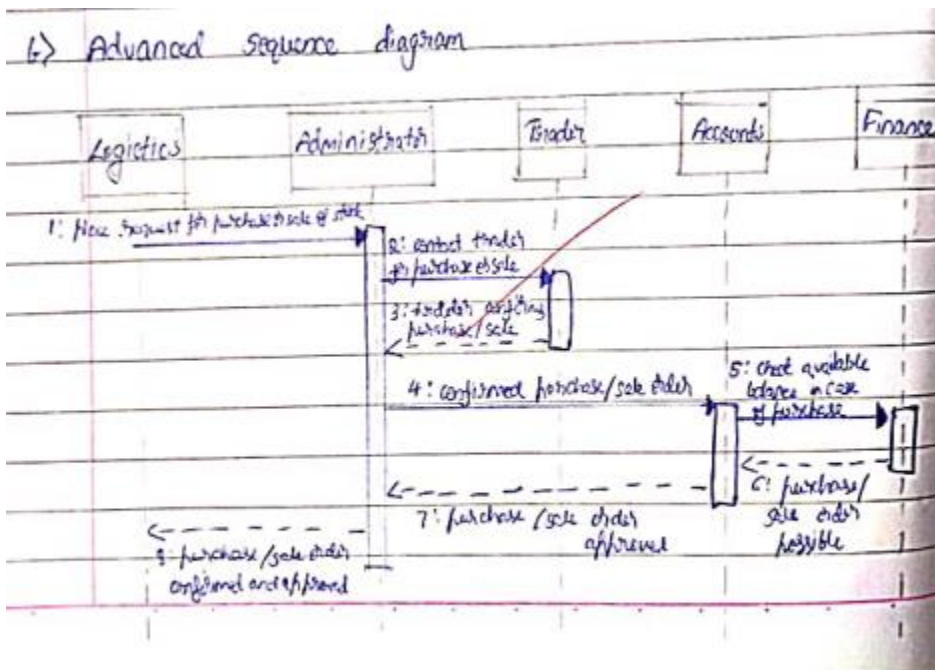 6) Advanced sequence diagram
Logictics
Administrator
Trader
Accounts
Finance
1: place request for purchase or sale of stock
2: contact trader
for purchase or sale
3: trader confirms
purchase/sale
4: confirmed purchase/sale order
5: check available
balance in case
of purchase
6: purchase/
sale order
possible
7: purchase/sale order
approved
8: purchase/sale order
confirmed and approved